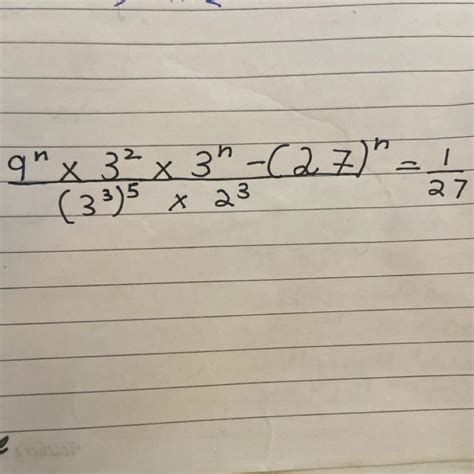 9ⁿ × 3² × 3ⁿ - (27)ⁿ = 1
(3³)⁵ × 2³ 27